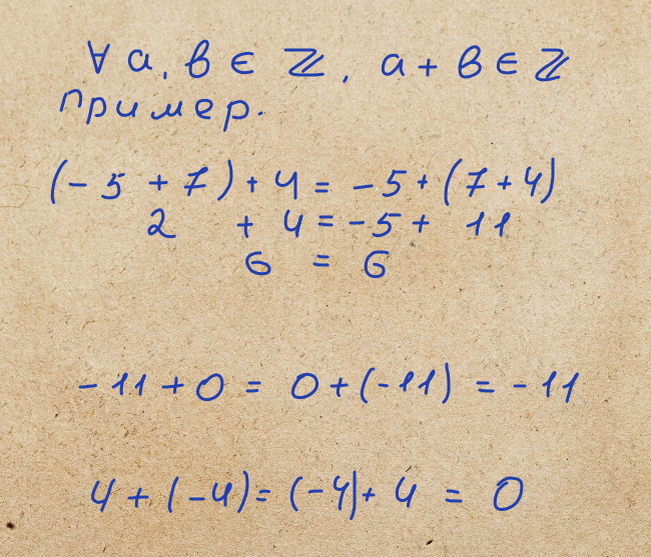 ∀ a, b ∈ ℤ, a + b ∈ ℤ
пример.
(-5 + 7) + 4 = -5 + (7 + 4)
2 + 4 = -5 + 11
6 = 6
-11 + 0 = 0 + (-11) = -11
4 + (-4) = (-4) + 4 = 0